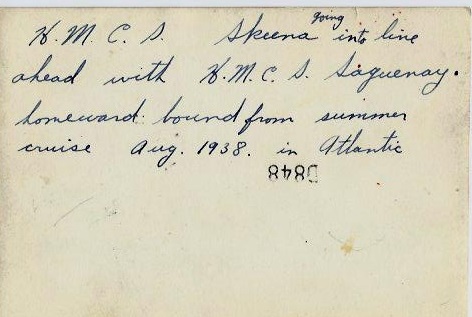 H. M C. S. Skeena going into line
ahead with H.M.C.S. Saguenay.
homeward bound from summer
cruise Aug. 1938. in Atlantic
D848